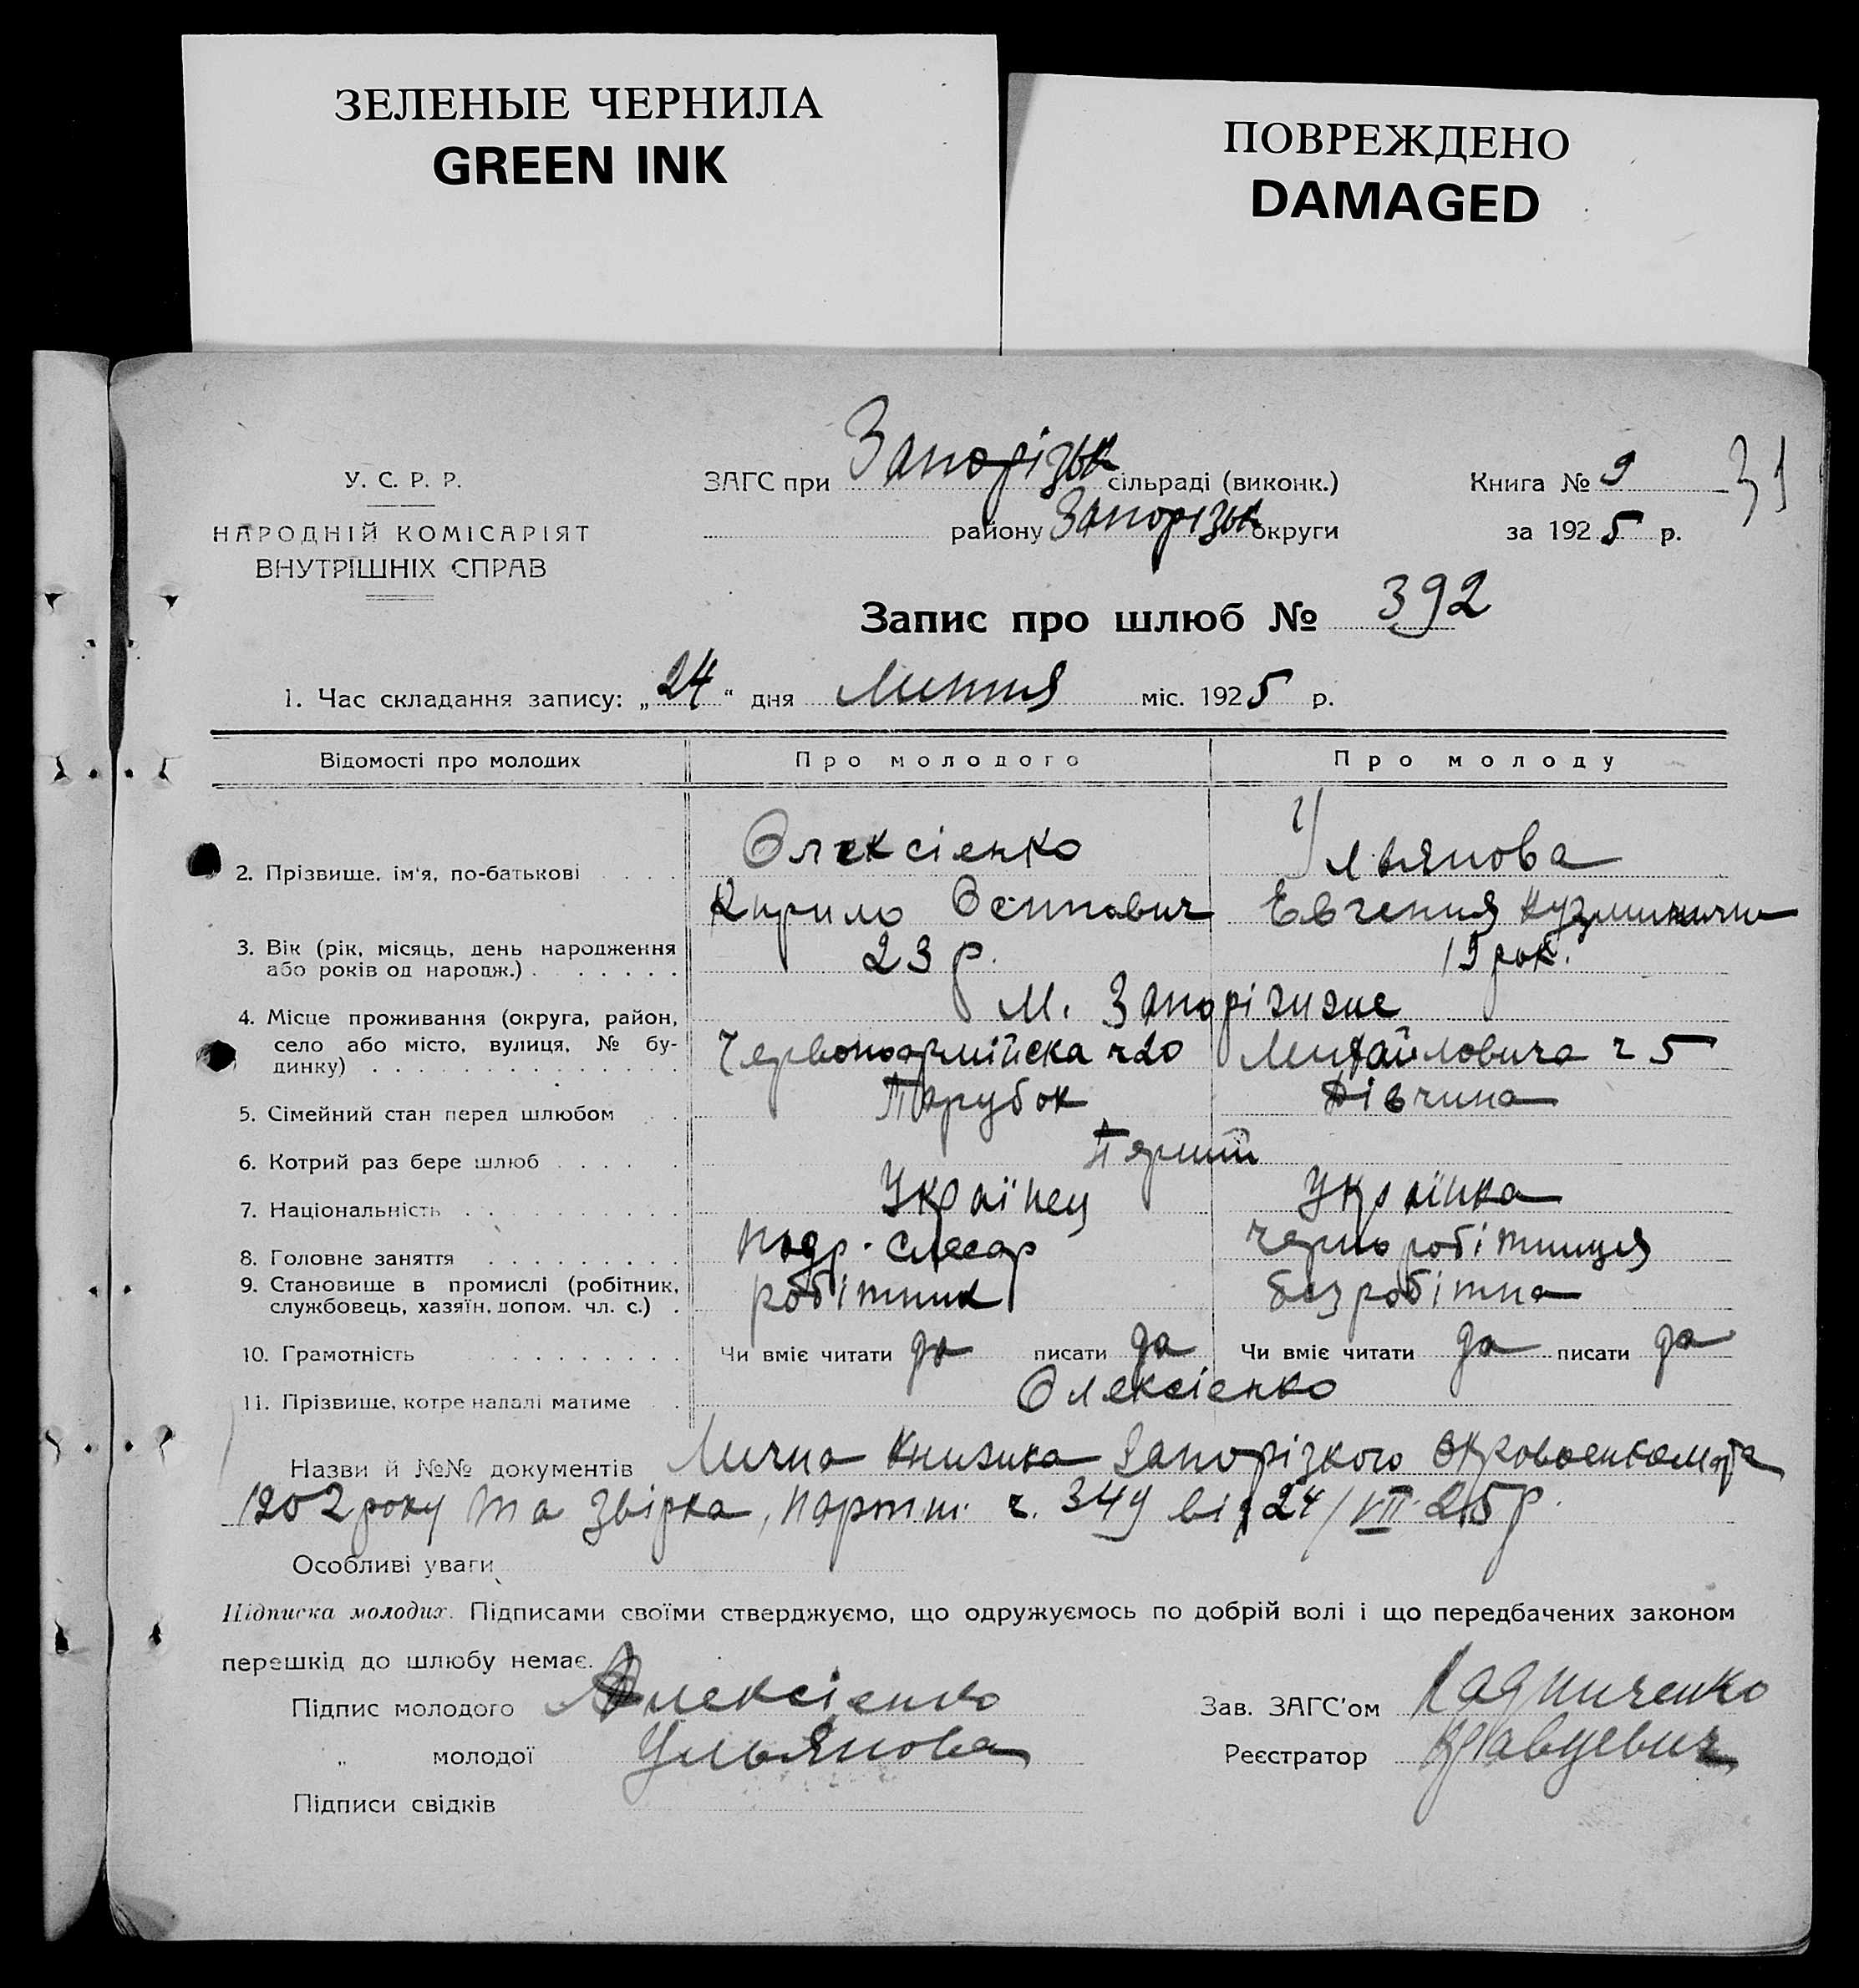 ЗЕЛЕНЫЕ ЧЕРНИЛА
GREEN INK
ПОВРЕЖДЕНО
DAMAGED
У. С. Р. Р.
НАРОДНІЙ КОМІСАРІЯТ
ВНУТРІШНІХ СПРАВ
ЗАГС при Запорізьк сільраді (виконк.)
району Запорізьк округи
Книга № 9
31
за 1925 р.
Запис про шлюб № 392
1. Час складання запису: „24“ дня Липня міс. 1925 р.
Відомості про молодих Про молодого Про молоду
2. Прізвище, ім'я, по-батькові Олексієнко Ульянова
Кирило Осипович Евгения
3. Вік (рік, місяць, день народження або років од народж.) 23 р. 19 рок.
4. Місце проживання (округа, район, село або місто, вулиця, № будинку) М. Запоріжже
Червоноармійска ч 20 Михайловича ч 5
5. Сімейний стан перед шлюбом Парубок Дівчина
6. Котрий раз бере шлюб Перший
7. Національність Українец Українка
8. Головне заняття слесар черноробітниця
9. Становище в промислі (робітник, службовець, хазяїн, допом. чл. с.) робітник безробітна
10. Грамотність Чи вміє читати да писати да Чи вміє читати да писати да
11. Прізвище, котре надалі матиме Олексієнко
Назви й №№ документів Лична книжка Запорізкого Окрвоенкомата
1902 року та звірка, ч. 349 від 24/VII 25 р.
Особливі уваги
Підписка молодих. Підписами своїми стверджуємо, що одружуємось по добрій волі і що передбачених законом
перешкід до шлюбу немає.
Підпис молодого Олексієнко Зав. ЗАГС'ом
„ молодої Ульянова Реєстратор Кравцевич
Підписи свідків